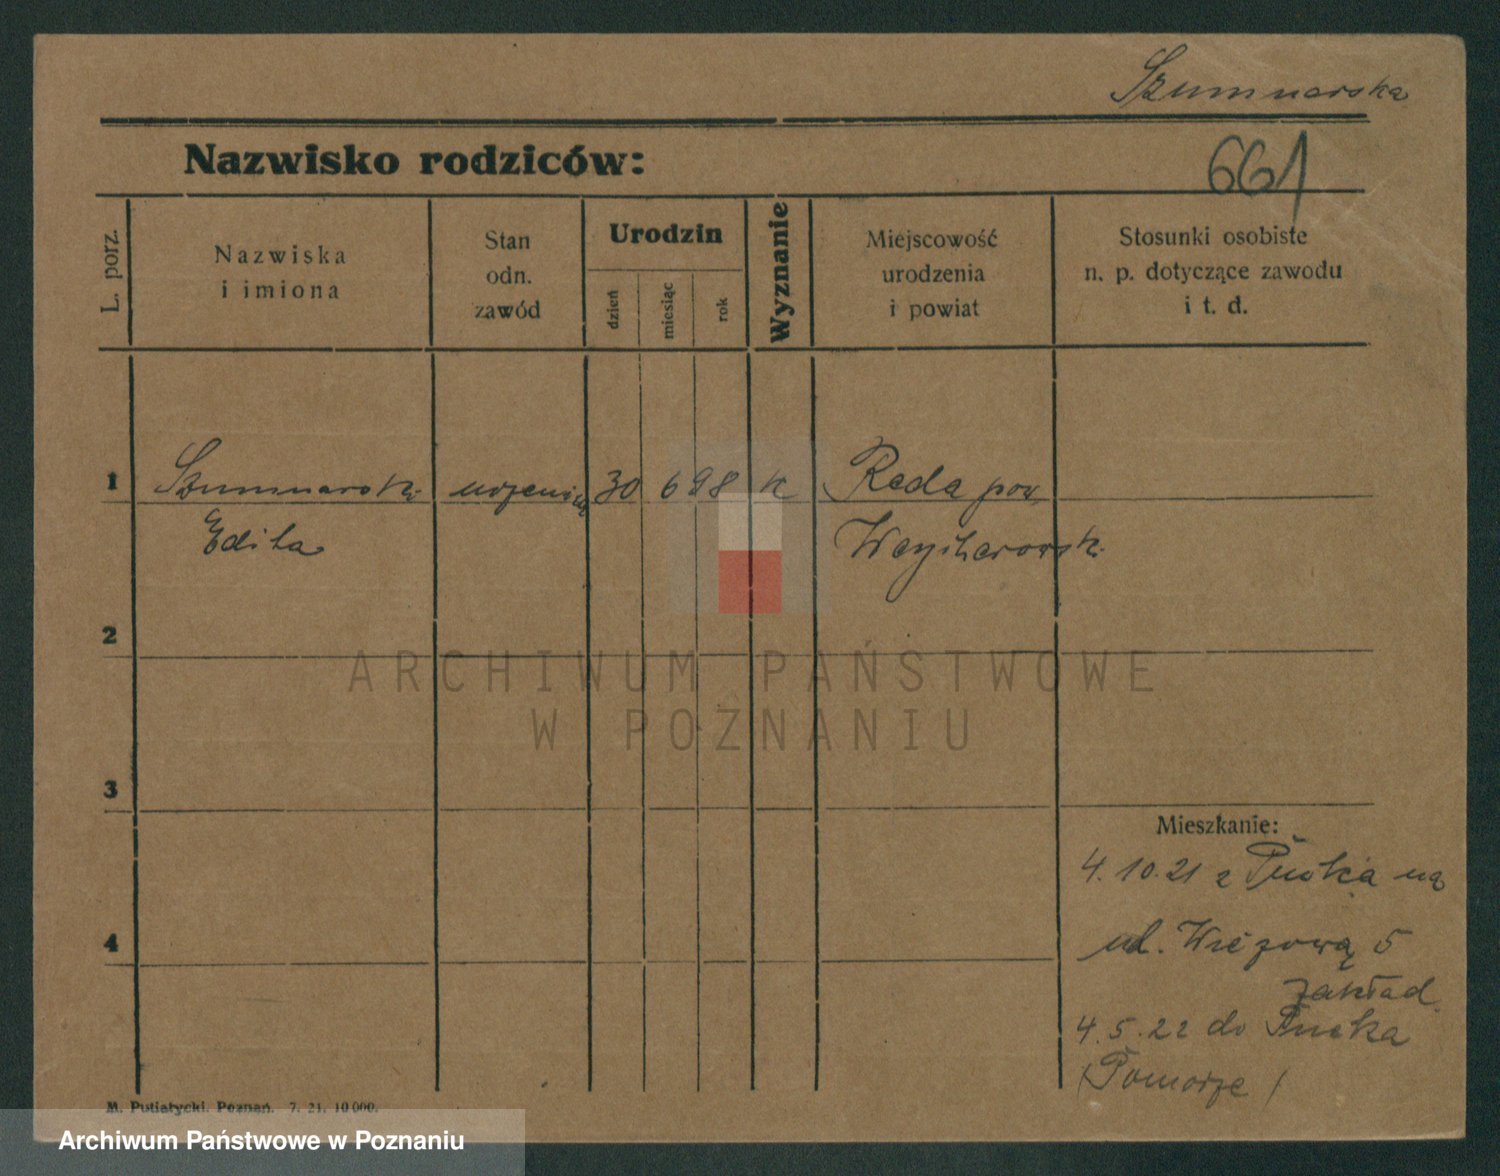 Szumnarska
Nazwisko rodziców:
661
L. porz.
Nazwiska
i imiona
Stan
odn.
zawód
Urodzin
dzień
miesiąc
rok
Wyznanie
Miejscowość
urodzenia
i powiat
Stosunki osobiste
n. p. dotyczące zawodu
i t. d.
1 30 6 98 k Reda pow.
Edita Wejherowsk.
2
ARCHIWUM PAŃSTWOWE
W POZNANIU
3
Mieszkanie:
4.10.21 z Pucka na
4
ul. Wieżową 5
zakład.
4.5.22 do Pucka
(Pomorze)
M. Putiatycki, Poznań. 7. 21. 10 000.
Archiwum Państwowe w Poznaniu